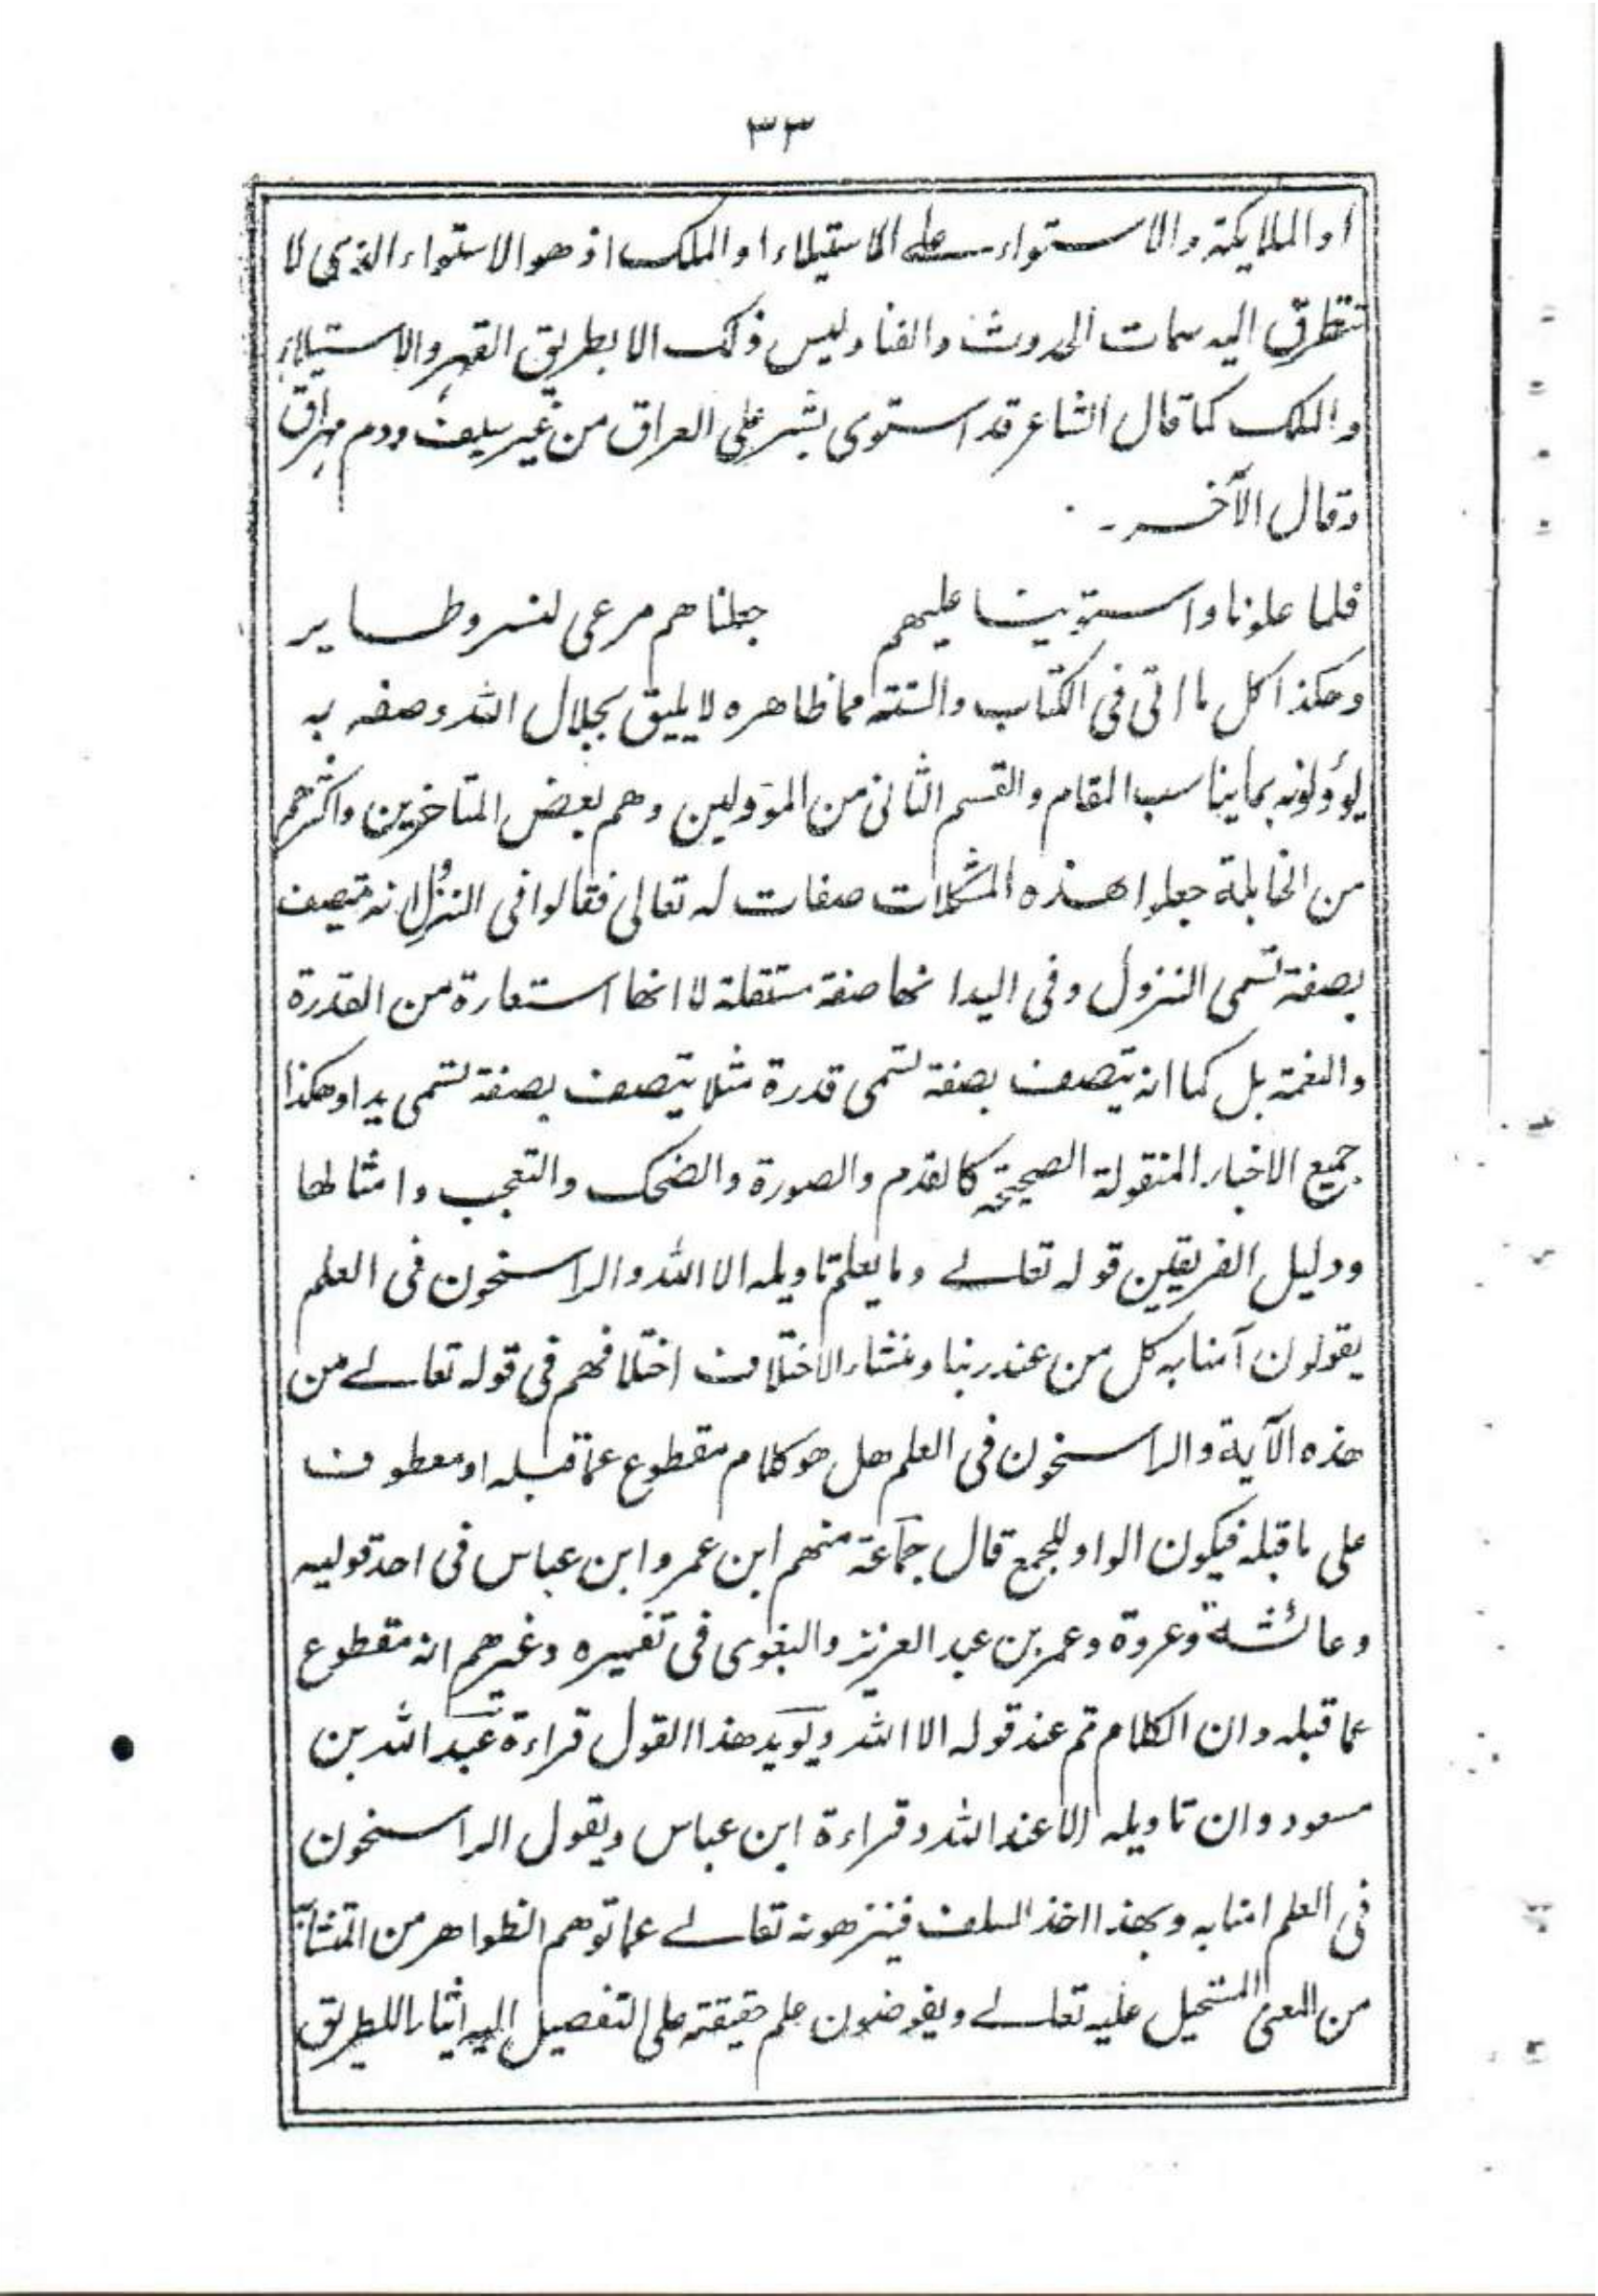 ٣٣
او الملايكة والاستواء على الاستيلاء او الملك اذ هو الاستواء الذى لا
تتطرق اليه سمات الحدوث والفنا وليس ذلك الا بطريق القهر والاستيلاء
والملك كما قال الشاعر قد استوى بشر على العراق من غير سيف ودم مهراق
وقال الآخر
فلما علونا واستوينا عليهم جعلناهم مرعى لنسر وطاير
وهكذا كل ما اتى فى الكتاب والسنة مما ظاهره لا يليق بجلال الله وصفه به
يوؤلونه بما يناسب المقام والقسم الثانى من المؤولين وهم بعض المتاخرين واكثرهم
من الحنابلة جعلوا هذه المشكلات صفات له تعالى فقالوا فى النزول انه متصف
بصفة تسمى النزول وفى اليد انها صفة مستقلة لا انها استعارة من القدرة
والنعمة بل كما انه يتصف بصفة تسمى قدرة مثلا يتصف بصفة تسمى يدا وهكذا
جميع الاخبار المنقولة الصحيحة كالقدم والصورة والضحك والتعجب وامثالها
ودليل الفريقين قوله تعالى وما يعلم تاويله الا الله والراسخون فى العلم
يقولون آمنا به كل من عند ربنا ومنشاء الاختلاف اختلافهم فى قوله تعالى من
هذه الآية والراسخون فى العلم هل هو كلام مقطوع عما قبله او معطوف
على ما قبله فيكون الواو للجمع قال جماعة منهم ابن عمر وابن عباس فى احد قوليه
وعائشة وعروة وعمر بن عبد العزيز والبغوى فى تفسيره وغيرهم انه مقطوع
عما قبله وان الكلام تم عند قوله الا الله ويويد هذا القول قراءة عبد الله بن
مسعود وان تاويله الا عند الله وقراءة ابن عباس ويقول الراسخون
فى العلم امنا به وبهذا اخذ السلف فينزهونه تعالى عما توهم الظواهر من المتشابه
من المعنى المستحيل عليه تعالى ويفوضون علم حقيقته على التفصيل اليه ايثارا للطريق